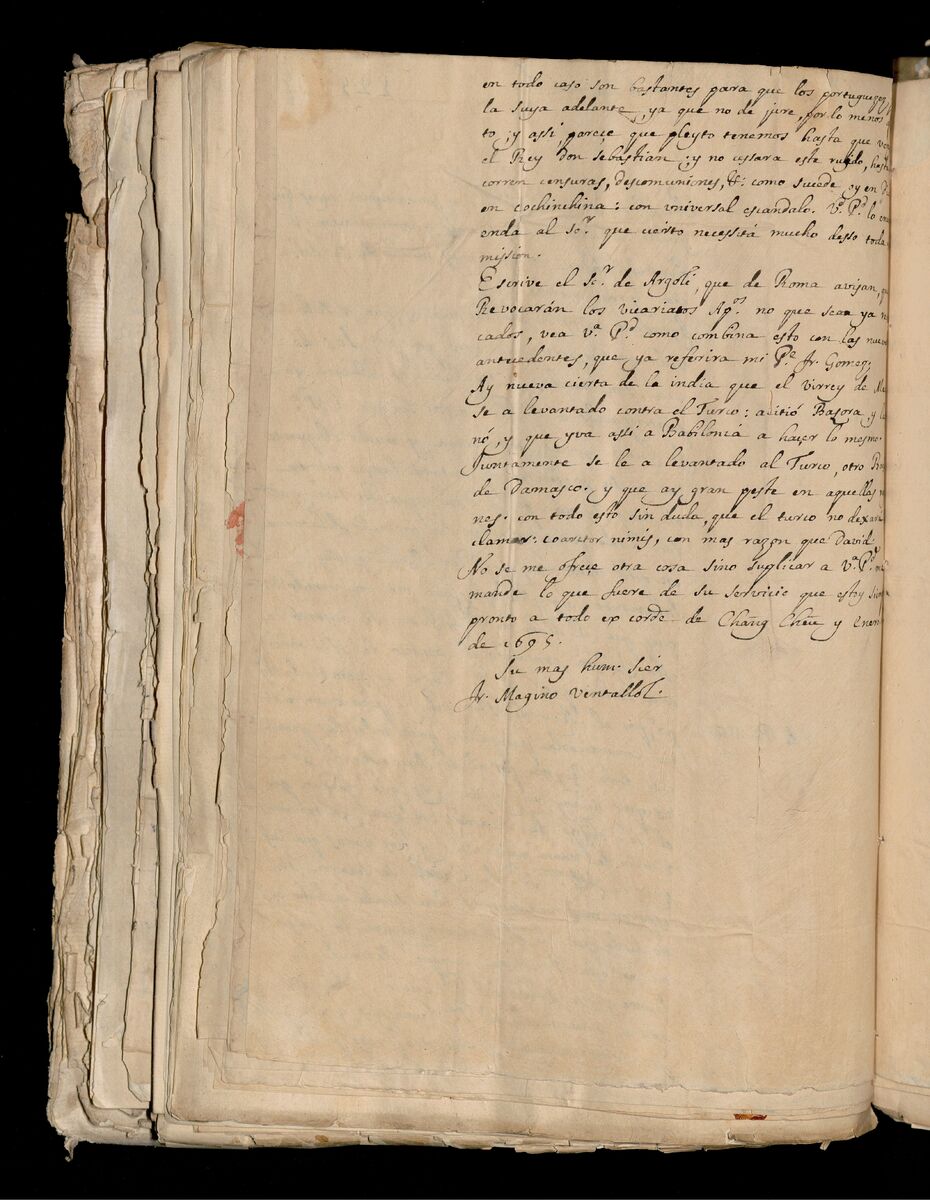 en todo caso son bastantes para que los portugueses
la suya adelante, ya que no de jure, por lo menos
to; y assi pareçe que pleyto tenemos hasta que
el Rey Don Sebastian; y no cessara este ruydo, hasta
corren censuras, descomuniones, &: como sucede oy en
en cochinchina: con vniversal escandalo. Vª Pd lo
enda al Sr. que cierto necessita mucho desso toda
mission.
Escrive el Sr de Argoli, que de Roma avisan,
Revocarán los vicariatos Apos no que sean ya
cados, vea vª Pd como combina esto con las
antecedentes, que ya referira mi Pe Fr. Gomez.
Ay nueva cierta de la india que el virrey de
se a levantado contra el Turco: asitió Basora, y
nó, y que yva assi a Babilonia a haçer lo mesmo.
Juntamente se le a levantado al Turco, otro
de Damasco. y que ay gran peste en aquellas
nes. con todo esto sin duda, que el turco no dexará
clamar: coarctor nimis, con mas razon que David
No se me ofreçe otra cosa sino suplicar a Vª Pd
mande lo que fuere de su servicio que estoy
pronto a todo ex corde. de Chañg Cheu y Enero
de 1695.
Su mas hum. sier
Fr. Magino Ventallol.